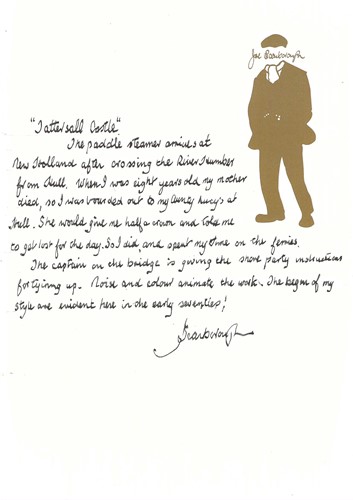 Joe Scarborough
"Tattersall Castle".
The paddle steamer arrives at
New Holland after crossing the River Humber
from Hull. When I was eight years old my mother
died, so I was boarded out to my Aunty Lucy's at
Hull. She would give me half a crown and told me
to get lost for the day. So I did, and spent my time on the ferries.
The captain on the bridge is giving the shore party instructions
for tying up. Noise and colour animate the work. The begin of my
style are evident here in the early seventies!
J Scarborough